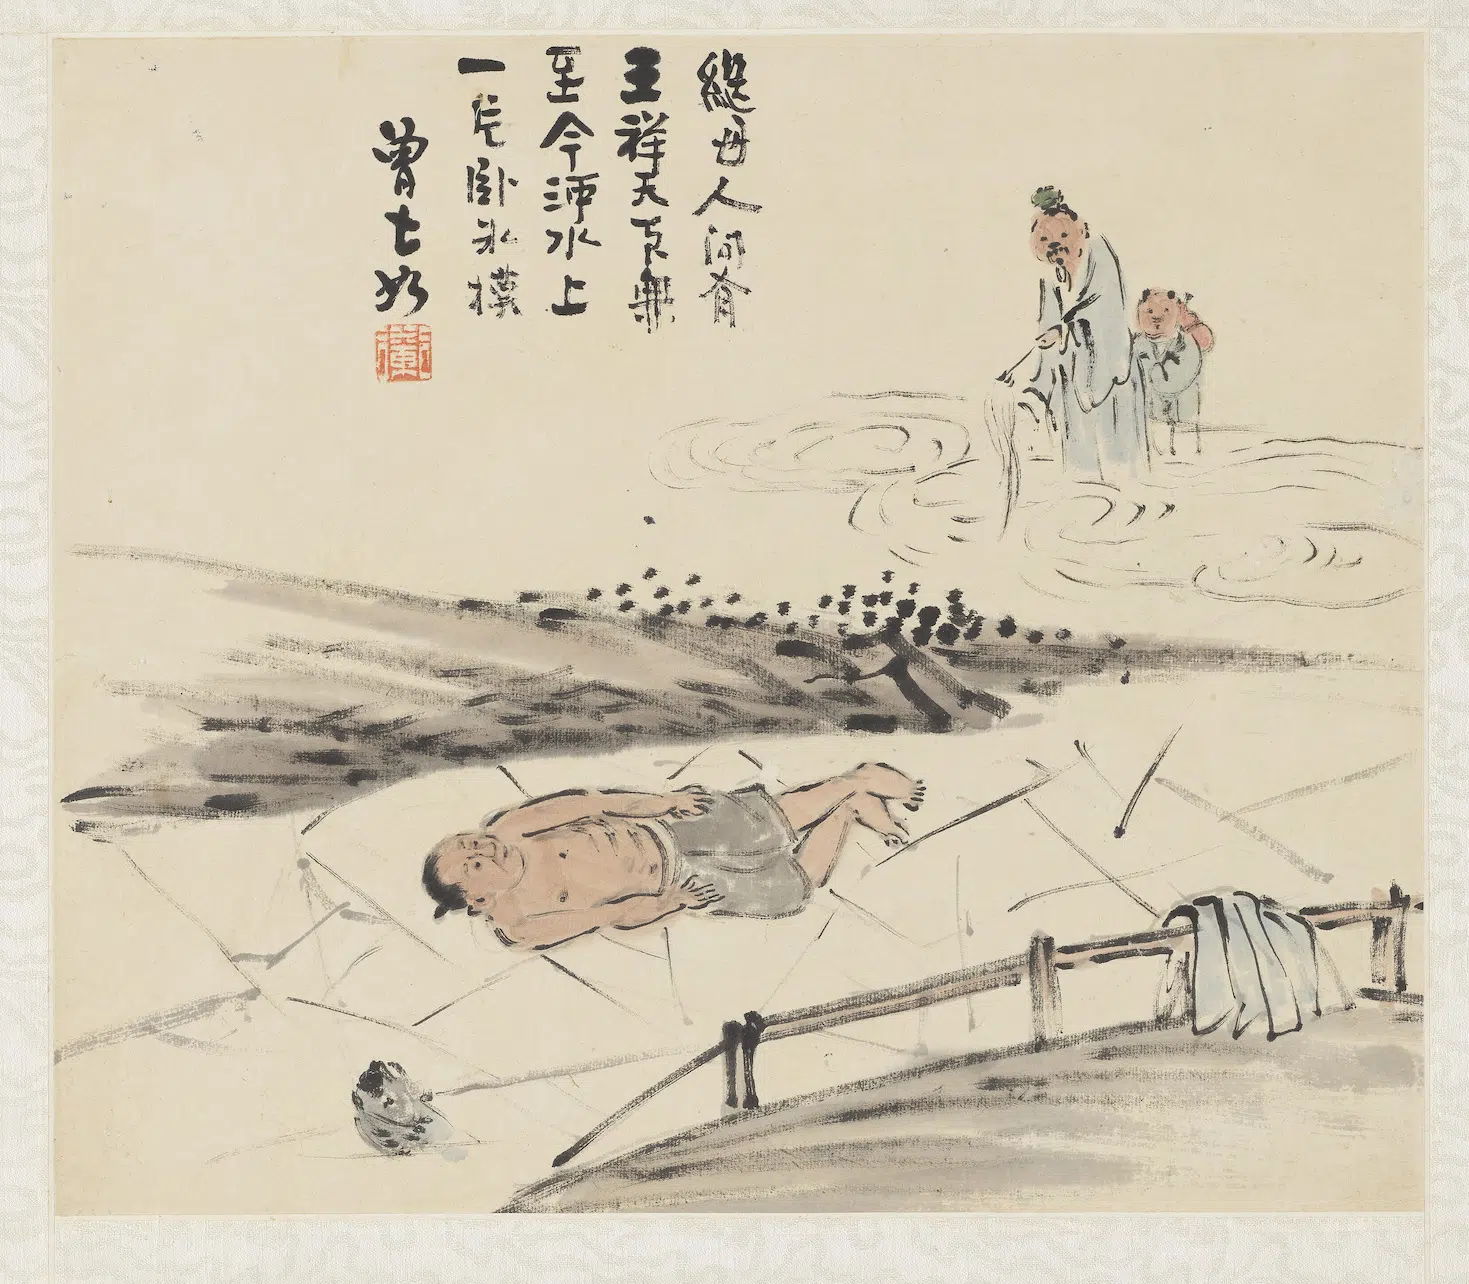 繼母人間有
王祥天下無
至今河水上
一片臥冰模
曾七如